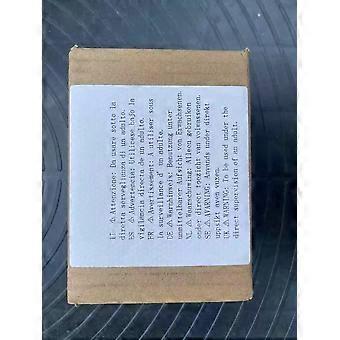 IT ⚠ Attenzione: Da usare sotto la
diretta sorveglianza di un adulto.
ES ⚠ Advertencia: Utilicese bajo la
vigilancia directa de un adulto.
FR ⚠ Avertissement: A utiliser sous
la surveillance d' un adulte.
DE ⚠ Warnhinweis: Benutzung unter
unmittelbarer Aufsicht von Erwachsenen.
NL ⚠ Waarschuwing: Alleen gebruiken
onder direct toezicht van volwassenen.
SE ⚠ AVARNING: Används under direkt
uppsikt aven vuxen.
UK ⚠ WARNING: To be used under the
direct supervision of an adult.